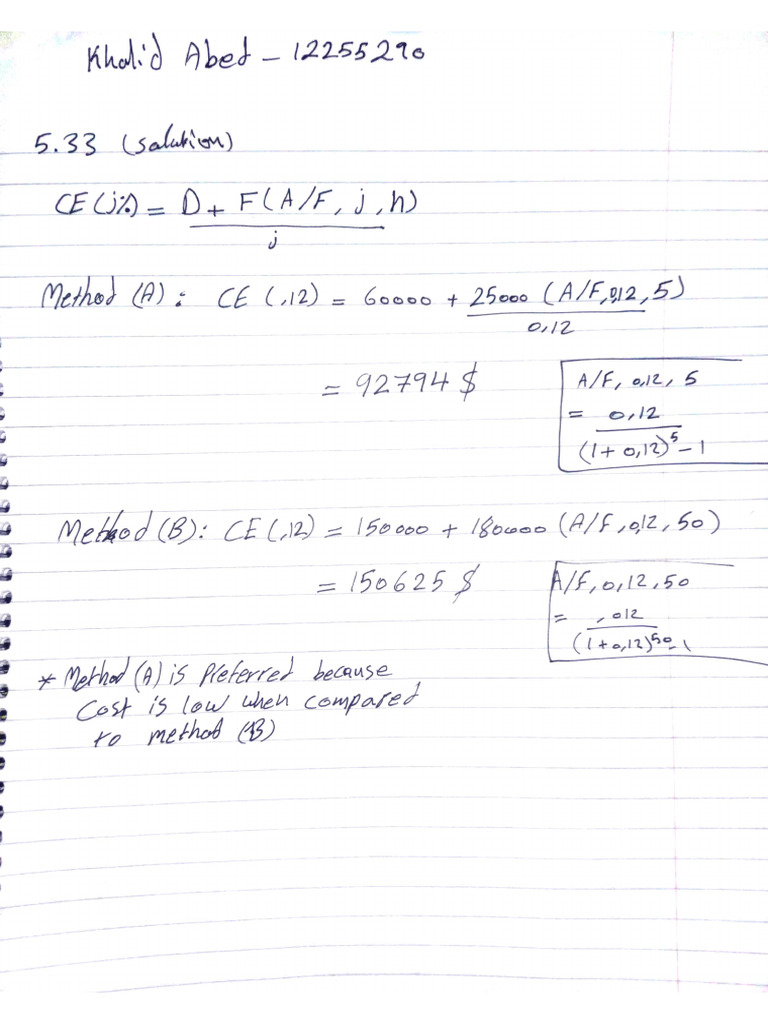 Khalid Abed - 12255290
5.33 (solution)
CE(j%) = D + F(A/F, j, n)
j
Method (A): CE (,12) = 60000 + 25000 (A/F,0,12, 5)
0,12
= 92794 $
A/F, 0,12, 5
= 0,12
(1 + 0,12)^5 - 1
Method (B): CE (,12) = 150000 + 180000 (A/F, 0,12, 50)
= 150625 $
A/F, 0,12, 50
= ,012
(1 + 0,12)^50 - 1
* Method (A) is Preferred because
Cost is low when compared
to method (B)